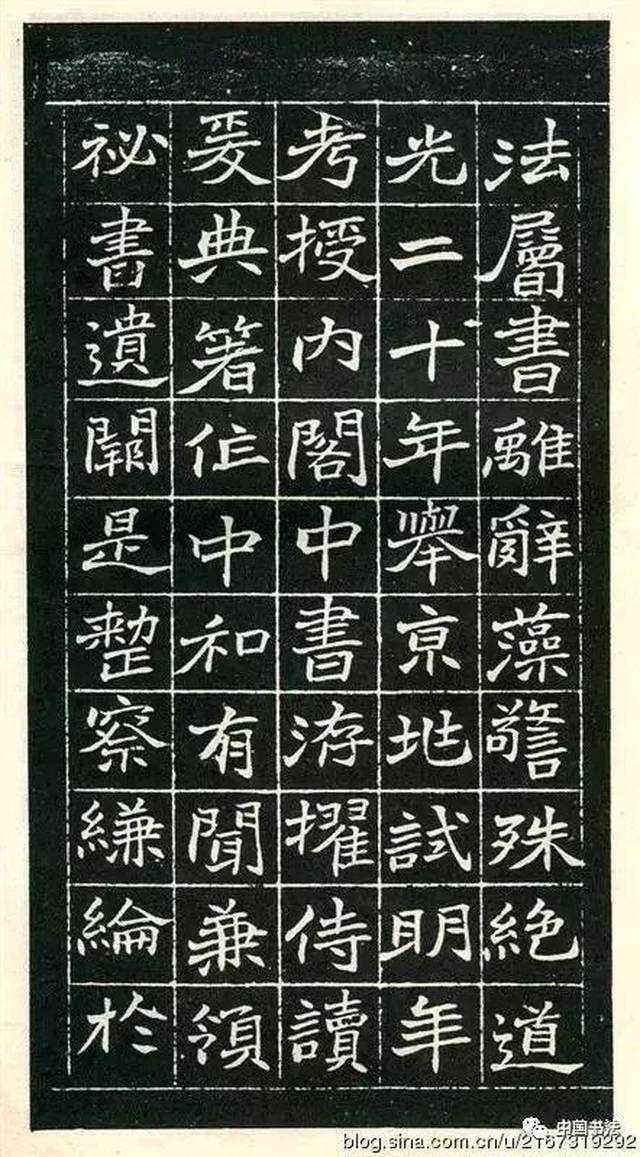 法屬書離辭藻警殊絕道
光二十年舉京兆試明年
考授內閣中書洊擢侍讀
爰典箸作中和有聞兼領
祕書遺闕是整察縑綸於
中国书法
blog.sina.com.cn/u/2167319292